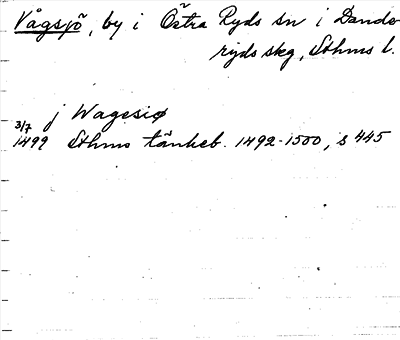 Vågsjö, by i Östra Ryds sn i Dande-
ryds skg, Sthms l.
j Wagesiø
3/7
1499 Sthms tänkeb. 1492-1500, s 445